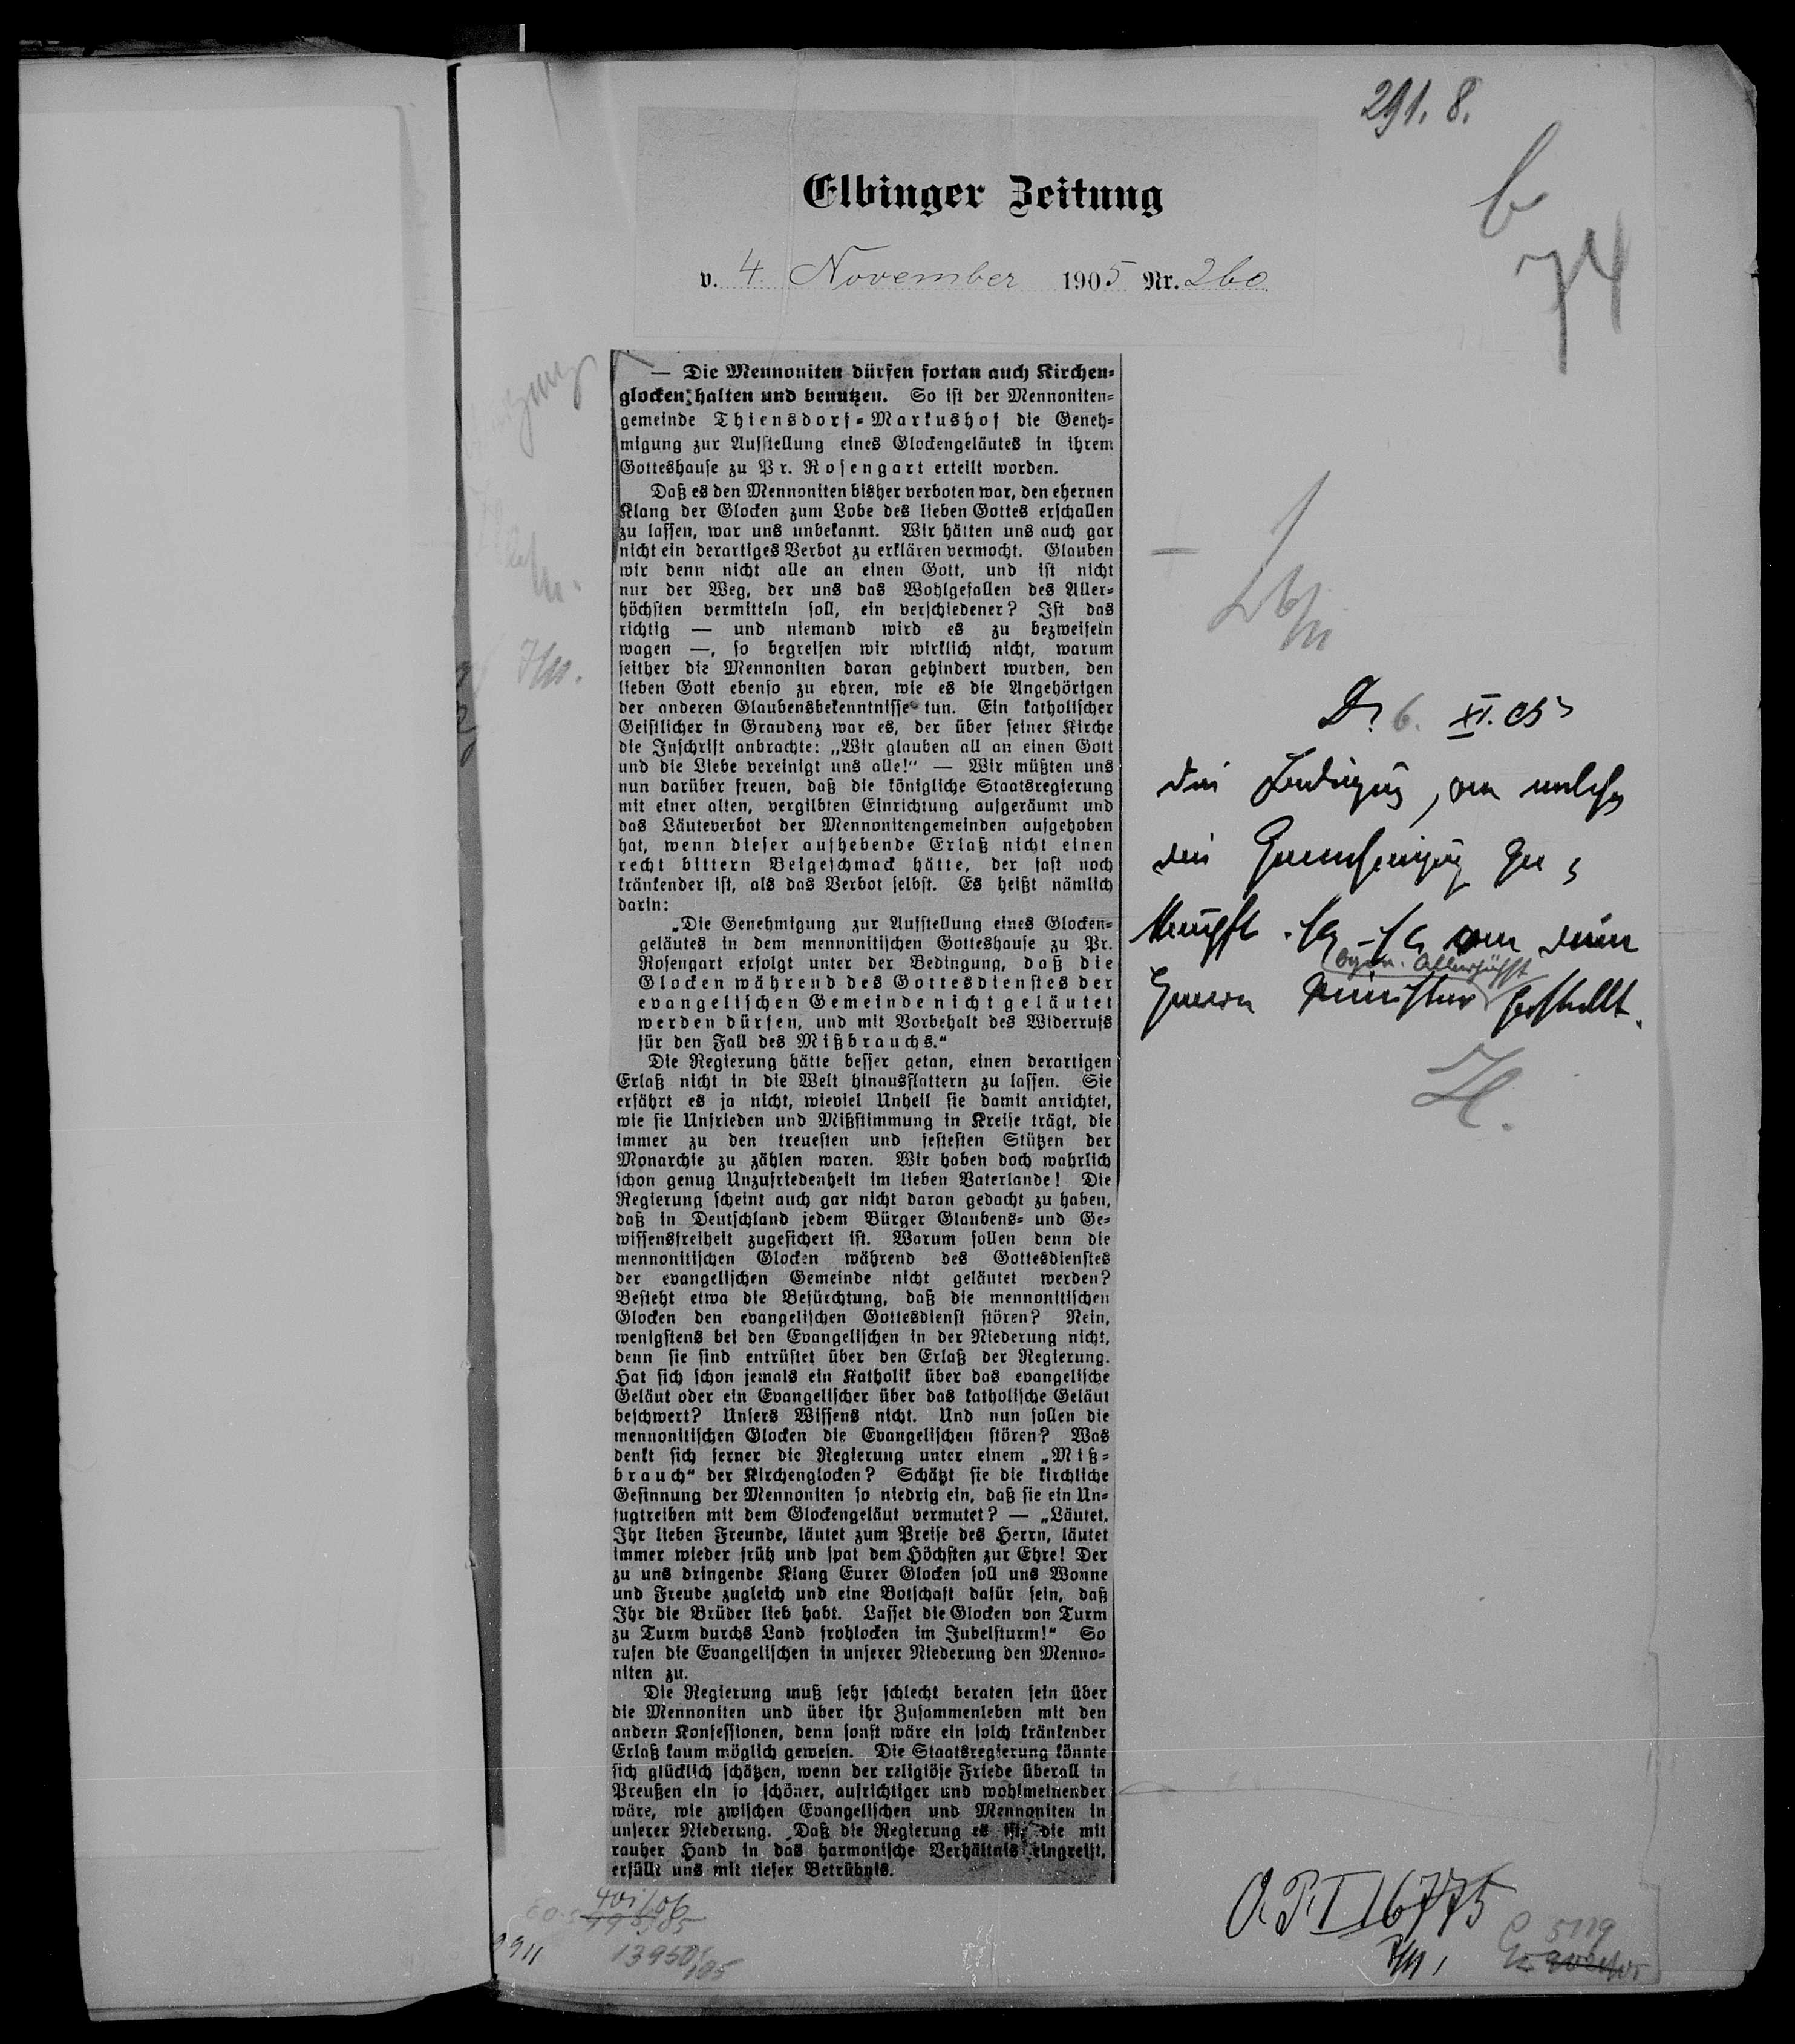 291. 8.
b
74
Elbinger Zeitung
v. 4. November 1905 Nr. 260
— Die Mennoniten dürfen fortan auch Kirchen-
glocken halten und benutzen. So ist der Mennoniten-
gemeinde Thiensdorf-Markushof die Geneh-
migung zur Aufstellung eines Glockengeläutes in ihrem
Gotteshause zu Pr. Rosengart erteilt worden.
Daß es den Mennoniten bisher verboten war, den ehernen
Klang der Glocken zum Lobe des lieben Gottes erschallen
zu lassen, war uns unbekannt. Wir hätten uns auch gar
nicht ein derartiges Verbot zu erklären vermocht. Glauben
wir denn nicht alle an einen Gott, und ist nicht
nur der Weg, der uns das Wohlgefallen des Aller-
höchsten vermitteln soll, ein verschiedener? Ist das
richtig — und niemand wird es zu bezweifeln
wagen —, so begreifen wir wirklich nicht, warum
seither die Mennoniten daran gehindert wurden, den
lieben Gott ebenso zu ehren, wie es die Angehörigen
der anderen Glaubensbekenntnisse tun. Ein katholischer
Geistlicher in Graudenz war es, der über seiner Kirche
die Inschrift anbrachte: „Wir glauben all an einen Gott
und die Liebe vereinigt uns alle!“ — Wir müßten uns
nun darüber freuen, daß die königliche Staatsregierung
mit einer alten, vergilbten Einrichtung aufgeräumt und
das Läuteverbot der Mennonitengemeinden aufgehoben
hat, wenn dieser aufhebende Erlaß nicht einen
recht bittern Beigeschmack hätte, der fast noch
kränkender ist, als das Verbot selbst. Es heißt nämlich
darin:
„Die Genehmigung zur Aufstellung eines Glocken-
geläutes in dem mennonitischen Gotteshause zu Pr.
Rosengart erfolgt unter der Bedingung, daß die
Glocken während des Gottesdienstes der
evangelischen Gemeinde nicht geläutet
werden dürfen, und mit Vorbehalt des Widerrufs
für den Fall des Mißbrauchs.“
Die Regierung hätte besser getan, einen derartigen
Erlaß nicht in die Welt hinausflattern zu lassen. Sie
erfährt es ja nicht, wieviel Unheil sie damit anrichtet,
wie sie Unfrieden und Mißstimmung in Kreise trägt, die
immer zu den treuesten und festesten Stützen der
Monarchie zu zählen waren. Wir haben doch wahrlich
schon genug Unzufriedenheit im lieben Vaterlande! Die
Regierung scheint auch gar nicht daran gedacht zu haben,
daß in Deutschland jedem Bürger Glaubens- und Ge-
wissensfreiheit zugesichert ist. Warum sollen denn die
mennonitischen Glocken während des Gottesdienstes
der evangelischen Gemeinde nicht geläutet werden?
Besteht etwa die Befürchtung, daß die mennonitischen
Glocken den evangelischen Gottesdienst stören? Nein,
wenigstens bei den Evangelischen in der Niederung nicht,
denn sie sind entrüstet über den Erlaß der Regierung.
Hat sich schon jemals ein Katholik über das evangelische
Geläut oder ein Evangelischer über das katholische Geläut
beschwert? Unsers Wissens nicht. Und nun sollen die
mennonitischen Glocken die Evangelischen stören? Was
denkt sich ferner die Regierung unter einem „Miß-
brauch“ der Kirchenglocken? Schätzt sie die kirchliche
Gesinnung der Mennoniten so niedrig ein, daß sie ein Un-
fugtreiben mit dem Glockengeläut vermutet? — „Läutet,
Ihr lieben Freunde, läutet zum Preise des Herrn, läutet
immer wieder früh und spat dem Höchsten zur Ehre! Der
zu uns dringende Klang Eurer Glocken soll uns Wonne
und Freude zugleich und eine Botschaft dafür sein, daß
Ihr die Brüder lieb habt. Lasset die Glocken von Turm
zu Turm durchs Land frohlocken im Jubelsturm!“ So
rufen die Evangelischen in unserer Niederung den Menno-
niten zu.
Die Regierung muß sehr schlecht beraten sein über
die Mennoniten und über ihr Zusammenleben mit den
andern Konfessionen, denn sonst wäre ein solch kränkender
Erlaß kaum möglich gewesen. Die Staatsregierung könnte
sich glücklich schätzen, wenn der religiöse Friede überall in
Preußen ein so schöner, aufrichtiger und wohlmeinender
wäre, wie zwischen Evangelischen und Mennoniten in
unserer Niederung. Daß die Regierung es ist, die mit
rauher Hand in das harmonische Verhältnis eingreift,
erfüllt uns mit tiefer Betrübnis.
D. 6. XI. 05
die Bedingung, an welche
die Genehmigung ge-
knüpft ist, ist von dem
Herrn Minister gestellt.
16775
13950/05
5119